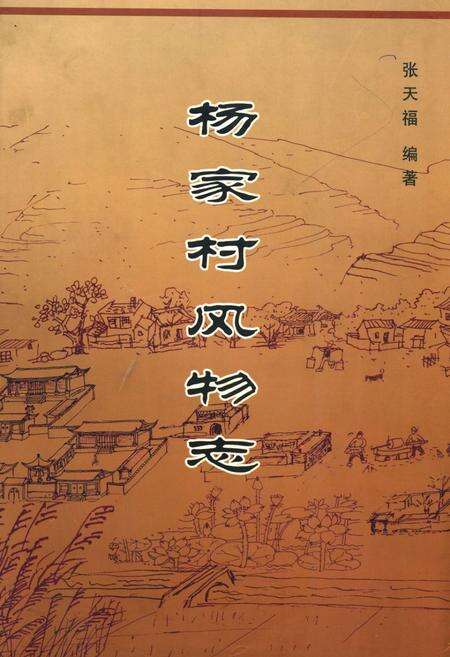 杨家村风物志
张天福 编著